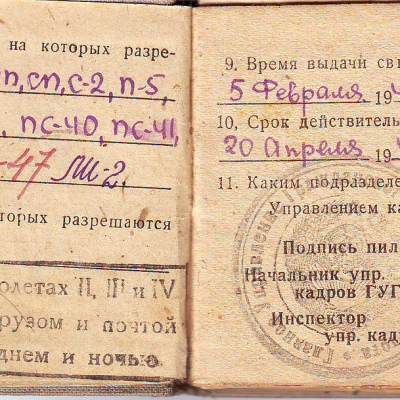 на которых разре-
П, СП, С-2, П-5,
ПС-40, ПС-41,
-47 ЛИ-2.
оторых разрешаются
олетах II, III и IV
рузом и почтой
днем и ночью
9. Время выдачи св
5 Февраля 19
10. Срок действитель
20 Апреля 19
11. Каким подразделе
Управлением ка
Подпись пил
Начальник упр.
кадров ГУГ
Инспектор
упр. кадр